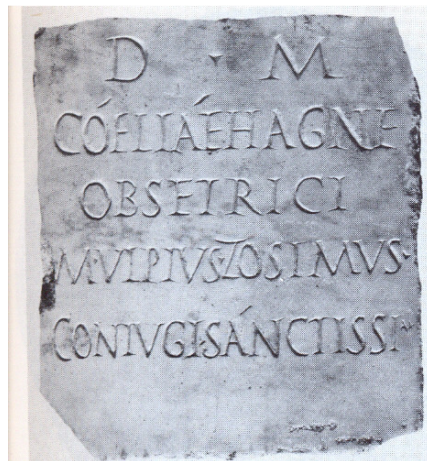 D · M
CÓELIÁE HAGNE
OBSETRICI
M·VLPIVS·ZOSIMVS·
CONIVGI·SÁNCTISSI